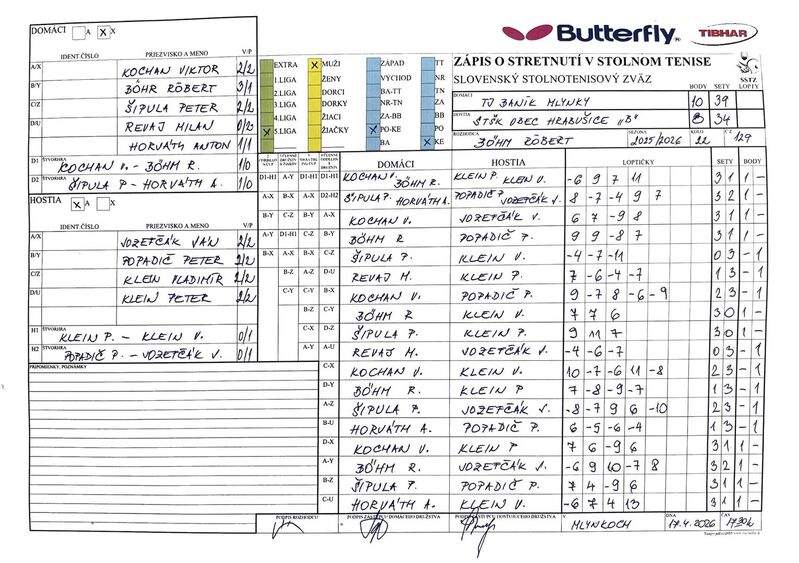 DOMÁCI A X X
Butterfly TIBHAR
IDENT.ČÍSLO PRIEZVISKO A MENO V/P
A/X KOCHAN VIKTOR 2/2
B/Y BÖHR RÓBERT 3/1
C/Z ŠIPULA PETER 2/2
D/U REVAJ MILAN 0/2
HORVÁTH ANTON 1/1
D1 ŠTVORHRA KOCHAN V. - BÖHM R. 1/0
D2 ŠTVORHRA ŠIPULA P - HORVÁTH A. 1/0
EXTRA X MUŽI ZÁPAD TT
1.LIGA ŽENY VÝCHOD NR
2.LIGA DORCI BA-TT TN
3.LIGA DORKY NR-TN ZA
4.LIGA ŽIACI ZA-BB BB
X 5.LIGA ŽIAČKY X PO-KE PO
BA X KE
ZÁPIS O STRETNUTÍ V STOLNOM TENISE
SLOVENSKÝ STOLNOTENISOVÝ ZVÄZ SSTZ
BODY SETY LOPTY
DOMÁCI TJ BANÍK MLYNKY 10 39
HOSTIA STŠK OBEC HRABUŠICE "B" 8 34
ROZHODCA BÖHM RÓBERT SEZONA 2025/2026 KOLO 22 Č Z 129
HOSTIA X A X
IDENT.ČÍSLO PRIEZVISKO A MENO V/P
A/X JOZEFČÁK JÁN 2/2
B/Y POPADIČ PETER 2/2
C/Z KLEIN VLADIMÍR 2/2
D/U KLEIN PETER 2/2
H1 ŠTVORHRA KLEIN P. - KLEIN V. 0/1
H2 ŠTVORHRA POPADIČ P. - JOZEFČÁK J. 0/1
PRIPOMIENKY, POZNÁMKY
DOMÁCI HOSTIA LOPTIČKY SETY BODY
D1-H1 A-Y D1-H1 D1-H1 KOCHAN V. BÖHM R. KLEIN P. KLEIN V. -6 9 7 11 3 1 1 -
A-X B-X A-X D2-H2 ŠIPULA P. HORVÁTH A. POPADIČ P. JOZEFČÁK J. 8 -7 -4 9 7 3 2 1 -
B-Y C-Z B-Y A-X KOCHAN V. JOZEFČÁK V. 6 7 -9 8 3 1 1 -
A-Y D1-H1 C-Z B-Y BÖHM R POPADIČ P. 9 9 -8 7 3 1 1 -
B-X A-X B-X C-Z ŠIPULA P. KLEIN V. -4 -7 -11 0 3 - 1
B-Z A-Z D-U REVAJ M. KLEIN P. 7 -6 -4 -7 1 3 - 1
C-Y C-Y B-X KOCHAN V. POPADIČ P. 9 -7 8 -6 -9 2 3 - 1
B-Z C-Y BÖHM R KLEIN V. 7 7 6 3 0 1 -
C-X D-Z ŠIPULA P. KLEIN P. 9 11 7 3 0 1 -
A-Y A-U REVAJ M. JOZEFČÁK J. -4 -6 -7 0 3 - 1
C-X KOCHAN V. KLEIN V. 10 -7 -6 11 -8 2 3 - 1
D-Y BÖHM R KLEIN P 7 -8 -9 -7 1 3 - 1
A-Z ŠIPULA P. JOZEFČÁK J. -8 -7 9 6 -10 2 3 - 1
B-U HORVÁTH A. POPADIČ P. 6 -5 -6 -4 1 3 - 1
D-X KOCHAN V. KLEIN P 7 6 -9 6 3 1 1 -
A-Y BÖHM R. JOZEFČÁK J. -6 9 10 -7 8 3 2 1 -
B-Z ŠIPULA P. POPADIČ P. 7 4 -9 6 3 1 1 -
C-U HORVÁTH A. KLEIN V. -6 7 4 13 3 1 1 -
PODPIS ROZHODCU PODPIS ZÁSTUPCU DOMÁCEHO DRUŽSTVA PODPIS ZÁSTUPCU HOSŤUJÚCEHO DRUŽSTVA V MLYNKOCH DŇA 17.4.2026 ČAS 17.30h